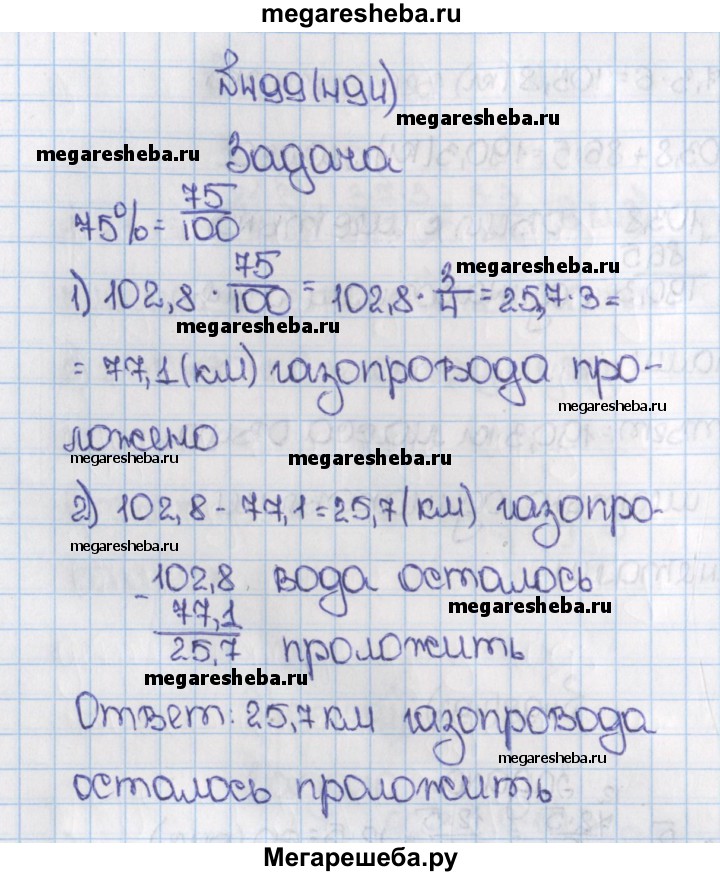 megaresheba.ru
№499(494)
megaresheba.ru
megaresheba.ru
Задача
75% = 75/100
megaresheba.ru
1) 102,8 · 75/100 = 102,8 · 3/4 = 25,7 · 3 =
megaresheba.ru
= 77,1 (км) газопровода про-
megaresheba.ru
ложено
megaresheba.ru
megaresheba.ru
2) 102,8 - 77,1 = 25,7 (км) газопро-
megaresheba.ru
- 102,8 вода осталось
megaresheba.ru
77,1
25,7 проложить
megaresheba.ru
Ответ: 25,7 км газопровода
megaresheba.ru
осталось проложить
Мегарешеба.ру